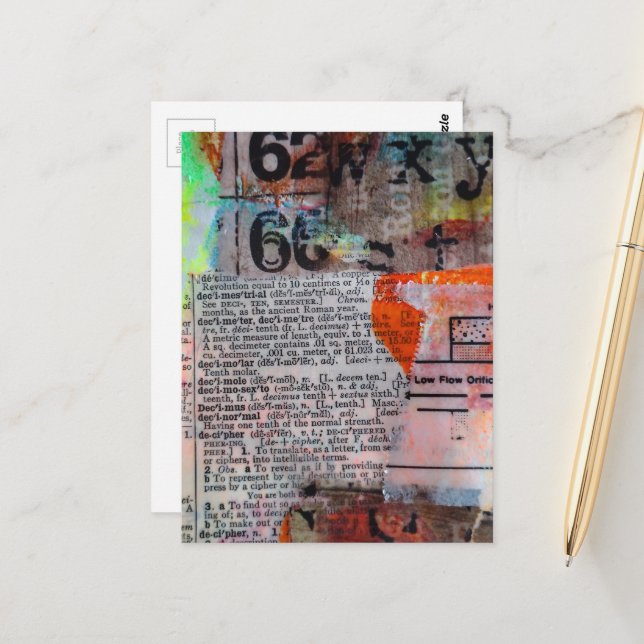 zzle
62 w x y
66
dé′cime
Revolution equal to 10 centimes or 1/10 franc.
dec′i·mes′tri·al (dĕs′ĭ·mĕs′trĭ·ăl), adj. [L.
See DECI-, TEN, SEMESTER.] Chron.
months, as the ancient Roman year.
dec′i·me′ter, dec′i·me′tre (dĕs′ĭ·mē′tẽr), n. [F.
tre, fr. déci- tenth (fr. L. decimus) + mètre. See
A metric measure of length, equiv. to .1 meter, or
A sq. decimeter contains .01 sq. meter, or 15.50
cu. decimeter, .001 cu. meter, or 61.023 cu. in.
dec′i·mo′lar (dĕs′ĭ·mō′lẽr), adj. [deci- + molar
Tenth molar.
dec′i·mole (dĕs′ĭ·mōl), n. [L. decem ten.] A
dec′i·mo·sex′to (-mō·sĕks′tō), n. & adj. [
teenth, fr. L. decimus tenth + sextus sixth.]
Dec′i·mus (dĕs′ĭ·mŭs), n. [L., tenth.] Masc.
dec′i·nor′mal (dĕs′ĭ·nôr′măl), adj. [deci-
Having one tenth of the normal strength.
de·ci′pher (dē·sī′fẽr), v. t.; DE·CI′PHERED
PHER·ING. [de- + cipher, after F. déch
PHER.] 1. To translate, as a letter, from sec
or ciphers, into intelligible terms.
2. Obs. a To reveal as if by providing
b To represent by oral description or pic
press by a cipher or
You are both
3. a To find out so as
ing of; as, to decip
b To make out or
de·ci′pher, n. 1.
A description
Low Flow Orific